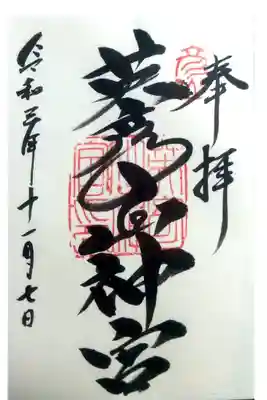 奉拝
英彦山神宮
令和三年十一月七日